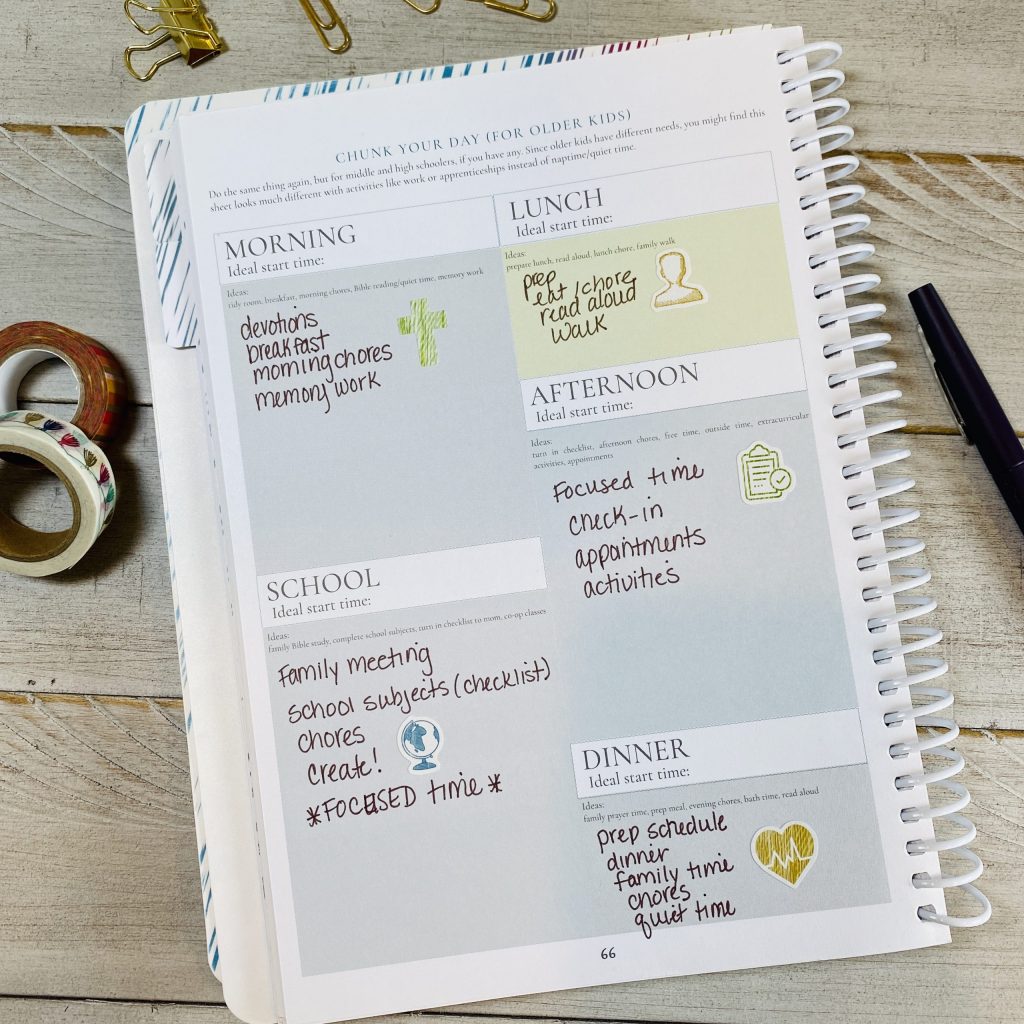 CHUNK YOUR DAY (FOR OLDER KIDS)
Do the same thing again, but for middle and high schoolers, if you have any. Since older kids have different needs, you might find this
sheet looks much different with activities like work or apprenticeships instead of naptime/quiet time.
MORNING
Ideal start time:
Ideas:
tidy room, breakfast, morning chores, Bible reading/quiet time, memory work
devotions
breakfast
morning chores
memory work
SCHOOL
Ideal start time:
Ideas:
family Bible study, complete school subjects, turn in checklist to mom, co-op classes
Family meeting
school subjects (checklist)
chores
create!
*FOCUSED time*
LUNCH
Ideal start time:
Ideas:
prepare lunch, read aloud, lunch chore, family walk
prep
eat / chore
read aloud
walk
AFTERNOON
Ideal start time:
Ideas:
turn in checklist, afternoon chores, free time, outside time, extracurricular
activities, appointments
Focused time
check-in
appointments
activities
DINNER
Ideal start time:
Ideas:
family prayer time, prep meal, evening chores, bath time, read aloud
prep schedule
dinner
family time
chores
quiet time
66